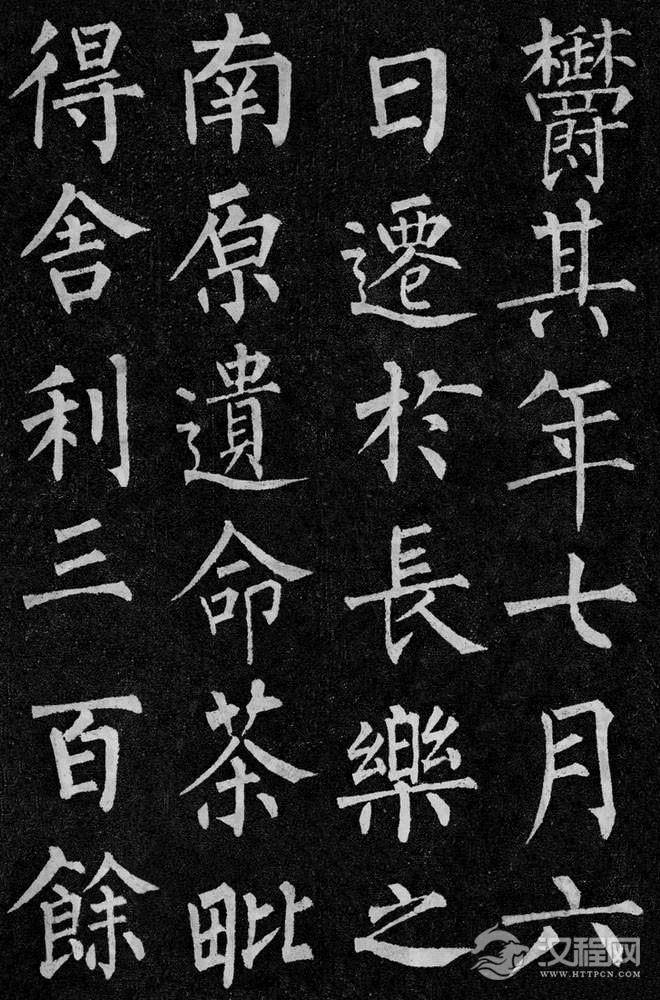 鬱其年七月六
日遷於長樂之
南原遺命茶毗
得舍利三百餘
汉程网
WWW.HTTPCN.COM